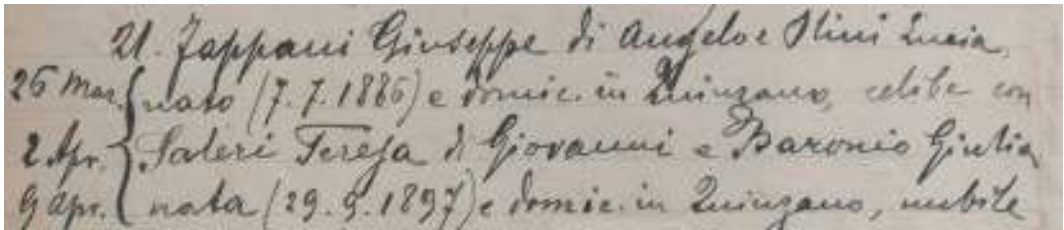 21. Zappani Giuseppe di Angelo e Olini Lucia
26 Mar. nato (7.7.1886) e domic. in Quinzano, celibe con
2 Apr. Saleri Teresa di Giovanni e Baronio Giulia
9 Apr. nata (29.9.1897) e domic. in Quinzano, nubile